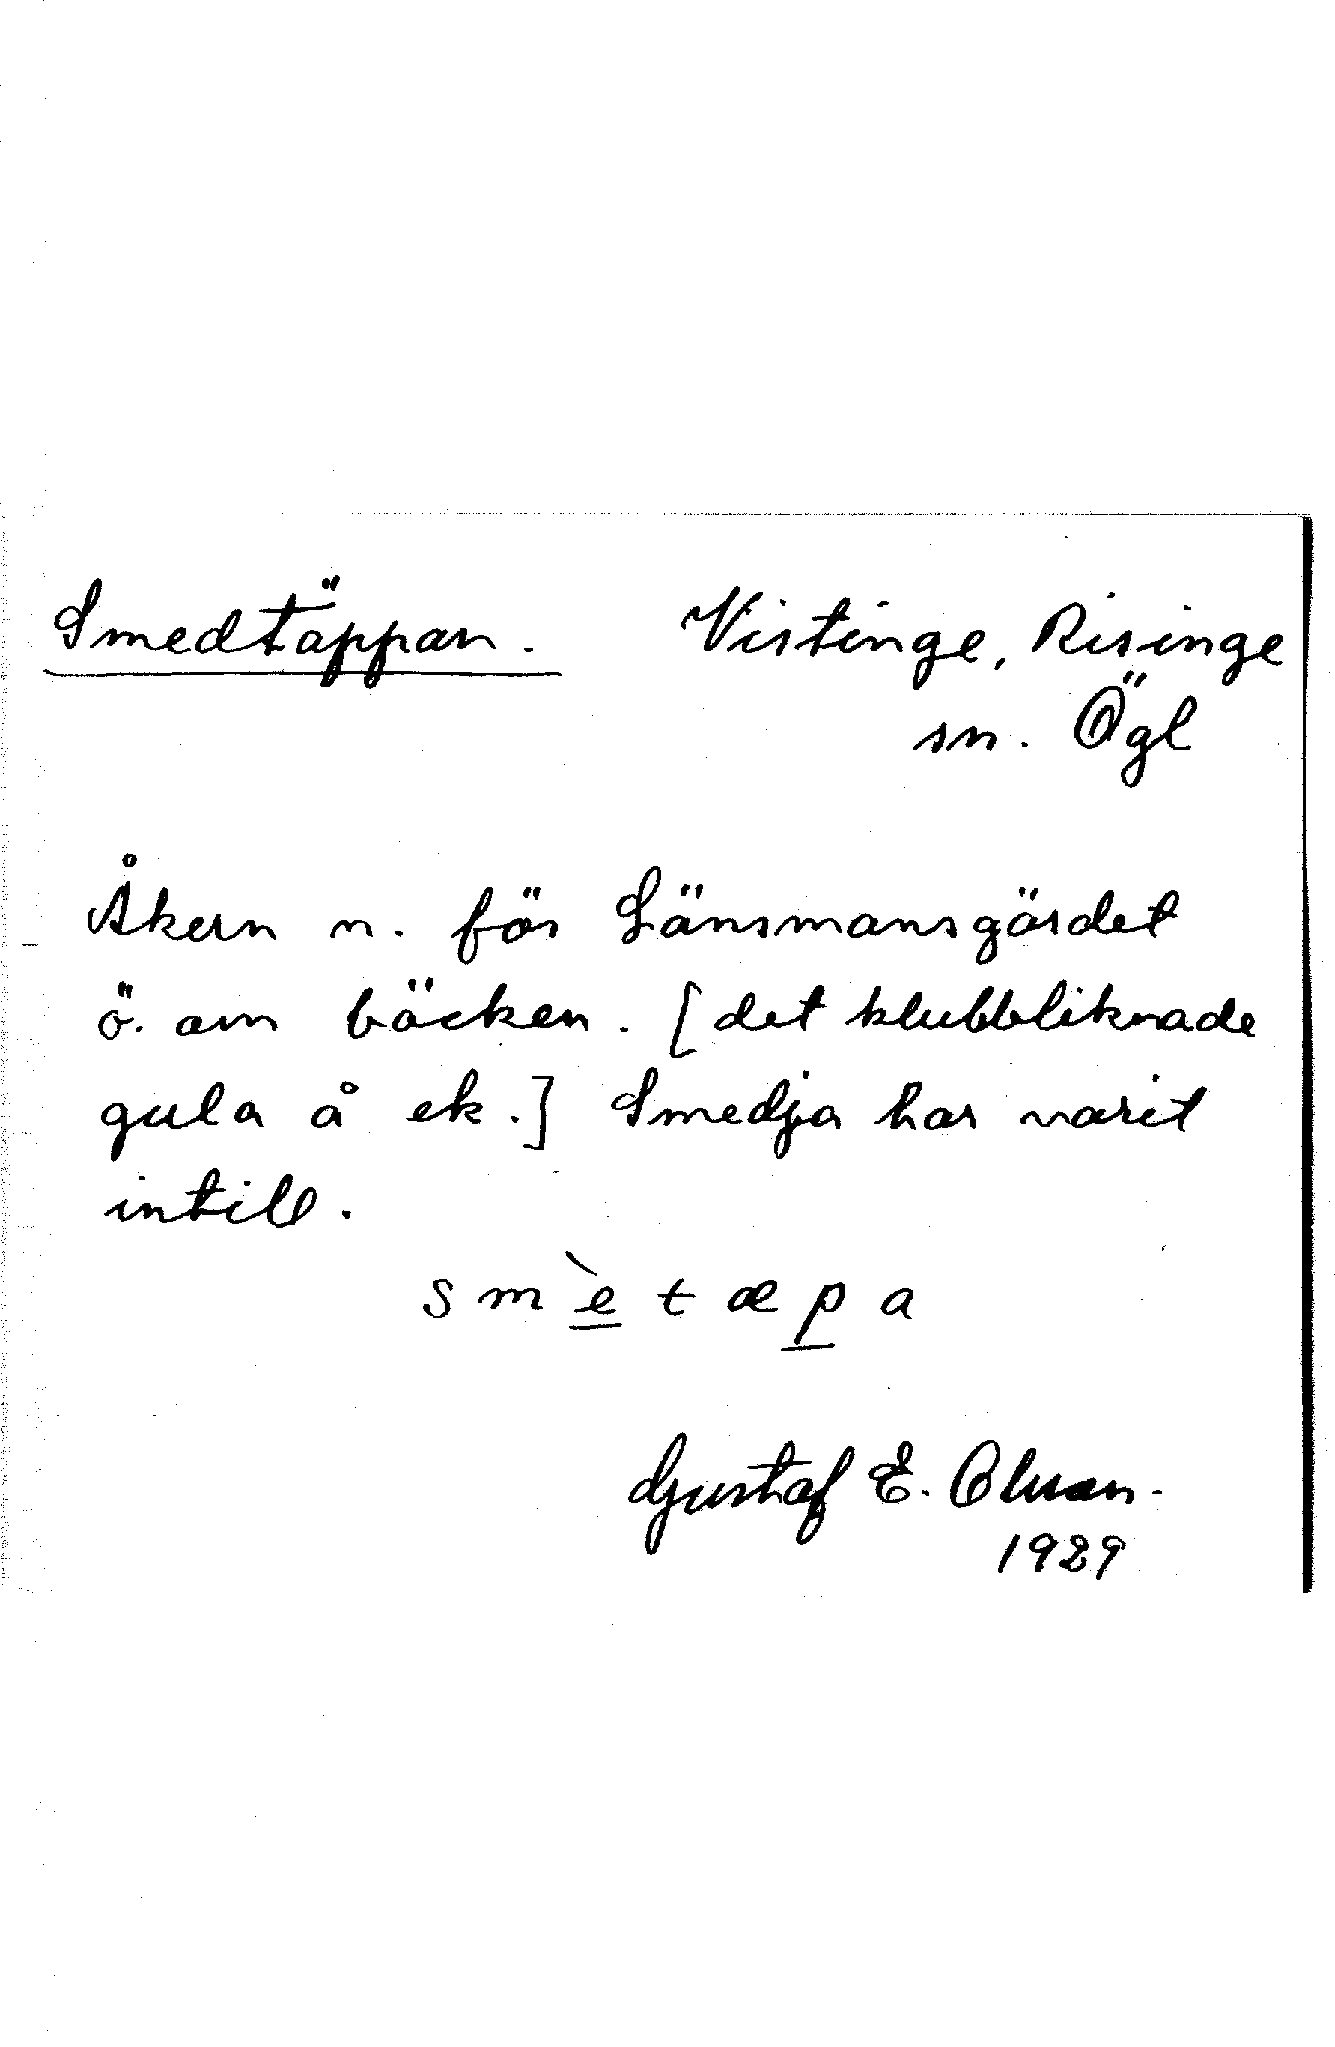 Smedtäppan. Vistinge, Risinge
sn. Ögl
Åkern n. för Länsmansgärdet
ö. om bäcken. [det klubbliknade
gula å ek.] Smedja har varit
intill.
s m è t æ p a
Gustaf E. Olsson.
1929